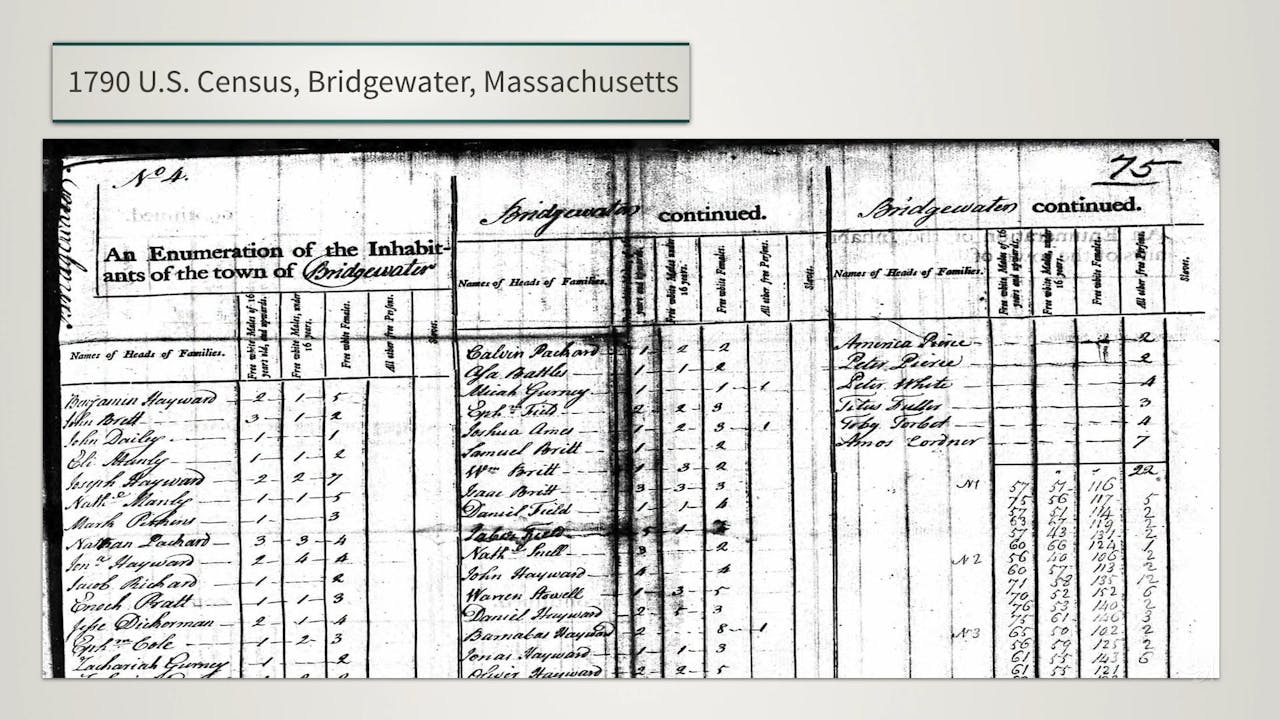 1790 U.S. Census, Bridgewater, Massachusetts
No 4.
An Enumeration of the Inhabit-
ants of the town of Bridgewater
Names of Heads of Families.
Free white Males of 16 years old, and upwards.
Free white Males, under 16 years.
Free white Females.
All other free Persons.
Slaves.
Benjamin Hayward 2 1 5
John Brett 3 1 2
John Dailey 1 1
Eli Manly 1 1 2
Joseph Hayward 2 2 7
Nath.l Manly 1 1 5
Mark Perkins 1 3
Nathan Packard 3 3 4
Jon.a Hayward 2 4 4
Jacob Richard 1 2
Enoch Pratt 1 1 3
Jesse Dickerman 2 1 4
Eph.m Cole 1 2 3
Zachariah Gurney 1 2
Bridgewater continued.
Names of Heads of Families.
years and upwards.
Free white Males under 16 years.
Free white Females.
All other free Persons.
Slaves.
Calvin Packard 1 2 2
Asa Battles 1 1 2
Micah Gurney 1 1 1
Eph.m Field 2 2 3
Joshua Ames 1 2 3 1
Samuel Britt 1 2
Wm Britt 1 3 2
Isaac Britt 3 3 3
Daniel Field 1 1 4
Jabez Field 5 1
Nath.l Snell 3 2
John Hayward 4
Warren Howell 3 5
Daniel Hayward 2 5 3
Barnabas Hayward 2 8 1
Jonas Hayward 1 1 3
Oliver Hayward 2 2 5
75
Bridgewater continued.
Names of Heads of Families.
Free white Males of 16 years and upwards.
Free white Males, under 16 years.
Free white Females.
All other free Persons.
Slaves.
America Peirce 2
Peter Pierce 2
Peter White 4
Titus Fuller 3
Toby Torbet 4
Amos Cordner 7
22
No 1 57 57 116
75 56 117 5
57 51 114 2
63 67 119 2
57 43 131 2
60 66 124 1
No 2 56 40 106 2
60 57 113 2
71 58 135 12
70 52 152 6
76 53 140 2
75 61 146 3
No 3 65 50 102 2
56 59 125 2
61 55 143 6
61 55 121